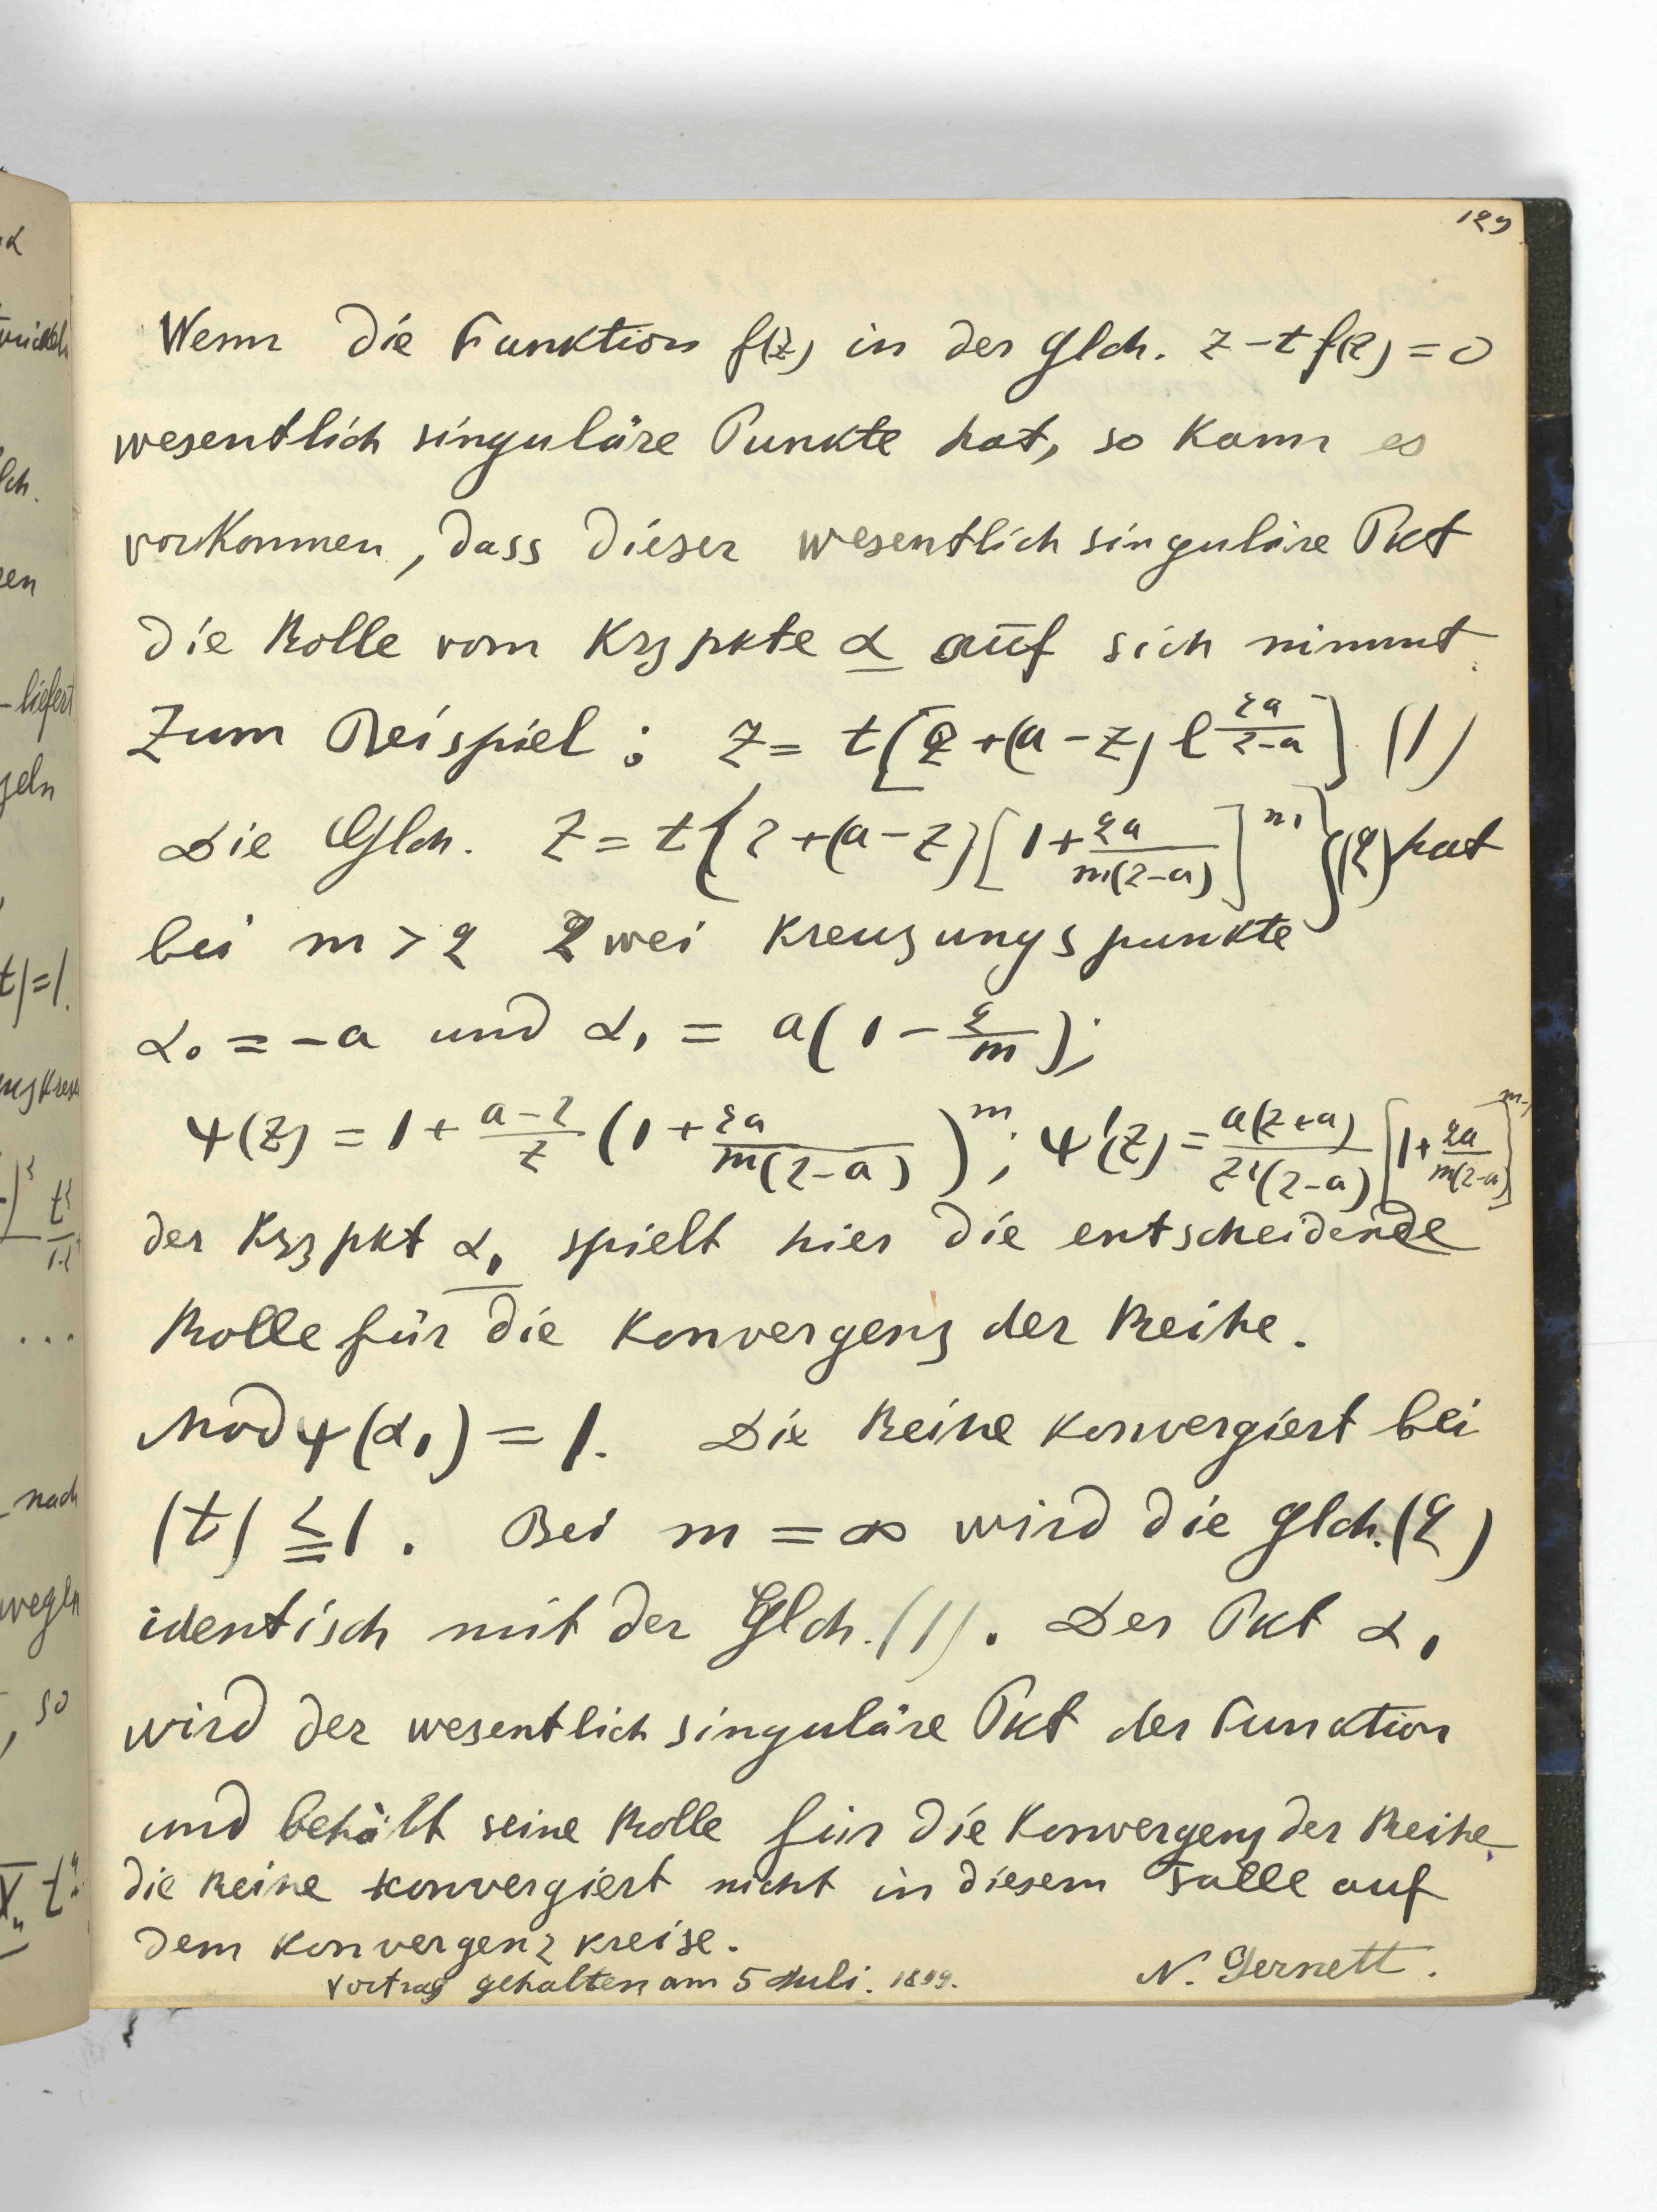 129
Wenn die Funktion f(z) in der Glch. z - t f(z) = 0
wesentlich singuläre Punkte hat, so kann es
vorkommen, dass dieser wesentlich singuläre Pkt
die Rolle vom Krz pkte α auf sich nimmt.
Zum Beispiel : z = t[z + (a - z) e^{\frac{2a}{z-a}}] (1)
Die Glch. z = t{z + (a - z)[1 + \frac{2a}{m(z-a)}]^m}(2) hat
bei m > 2 zwei Kreuzungspunkte
α₀ = -a und α₁ = a(1 - \frac{2}{m});
ψ(z) = 1 + \frac{a-z}{z} (1 + \frac{2a}{m(z-a)})^m; ψ'(z) = \frac{a(z+a)}{z²(z-a)} [1 + \frac{2a}{m(z-a)}]^{m-1}
der Krz pkt α₁ spielt hier die entscheidende
Rolle für die Konvergenz der Reihe.
Mod ψ(α₁) = 1. Die Reihe konvergiert bei
|t| ≦ 1. Bei m = ∞ wird die Glch. (2)
identisch mit der Glch. (1). Der Pkt α₁
wird der wesentlich singuläre Pkt der Funktion
und behält seine Rolle für die Konvergenz der Reihe.
die Reihe konvergiert nicht in diesem Falle auf
dem Konvergenzkreise.
Vortrag gehalten am 5 Juli. 1899. N. Gernett.